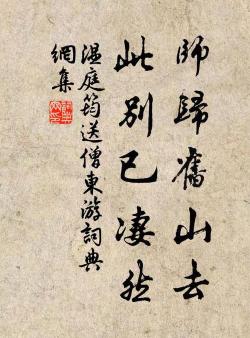 師歸舊山去
此別已淒然
温庭筠送僧東游詞典
網集